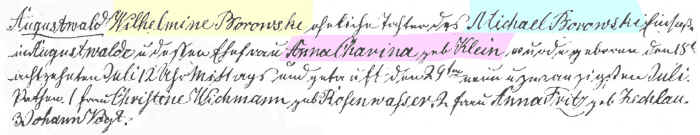 Augustwald Wilhelmine Borowski eheliche Tochter des Michael Borowski Einsaß
in Augustwalde u dessen Ehefrau Anna Charina geb Klein, wurde geboren den 18t
achtzehnten Juli 12 Uhr Mittags und getauft den 29ten neun u zwanzigsten Juli.
Pathen. 1 Frau Christine Wichmann geb Rosenwasser, 2 Frau Anna Fritz geb Zechlau
3 Johann Vogt.